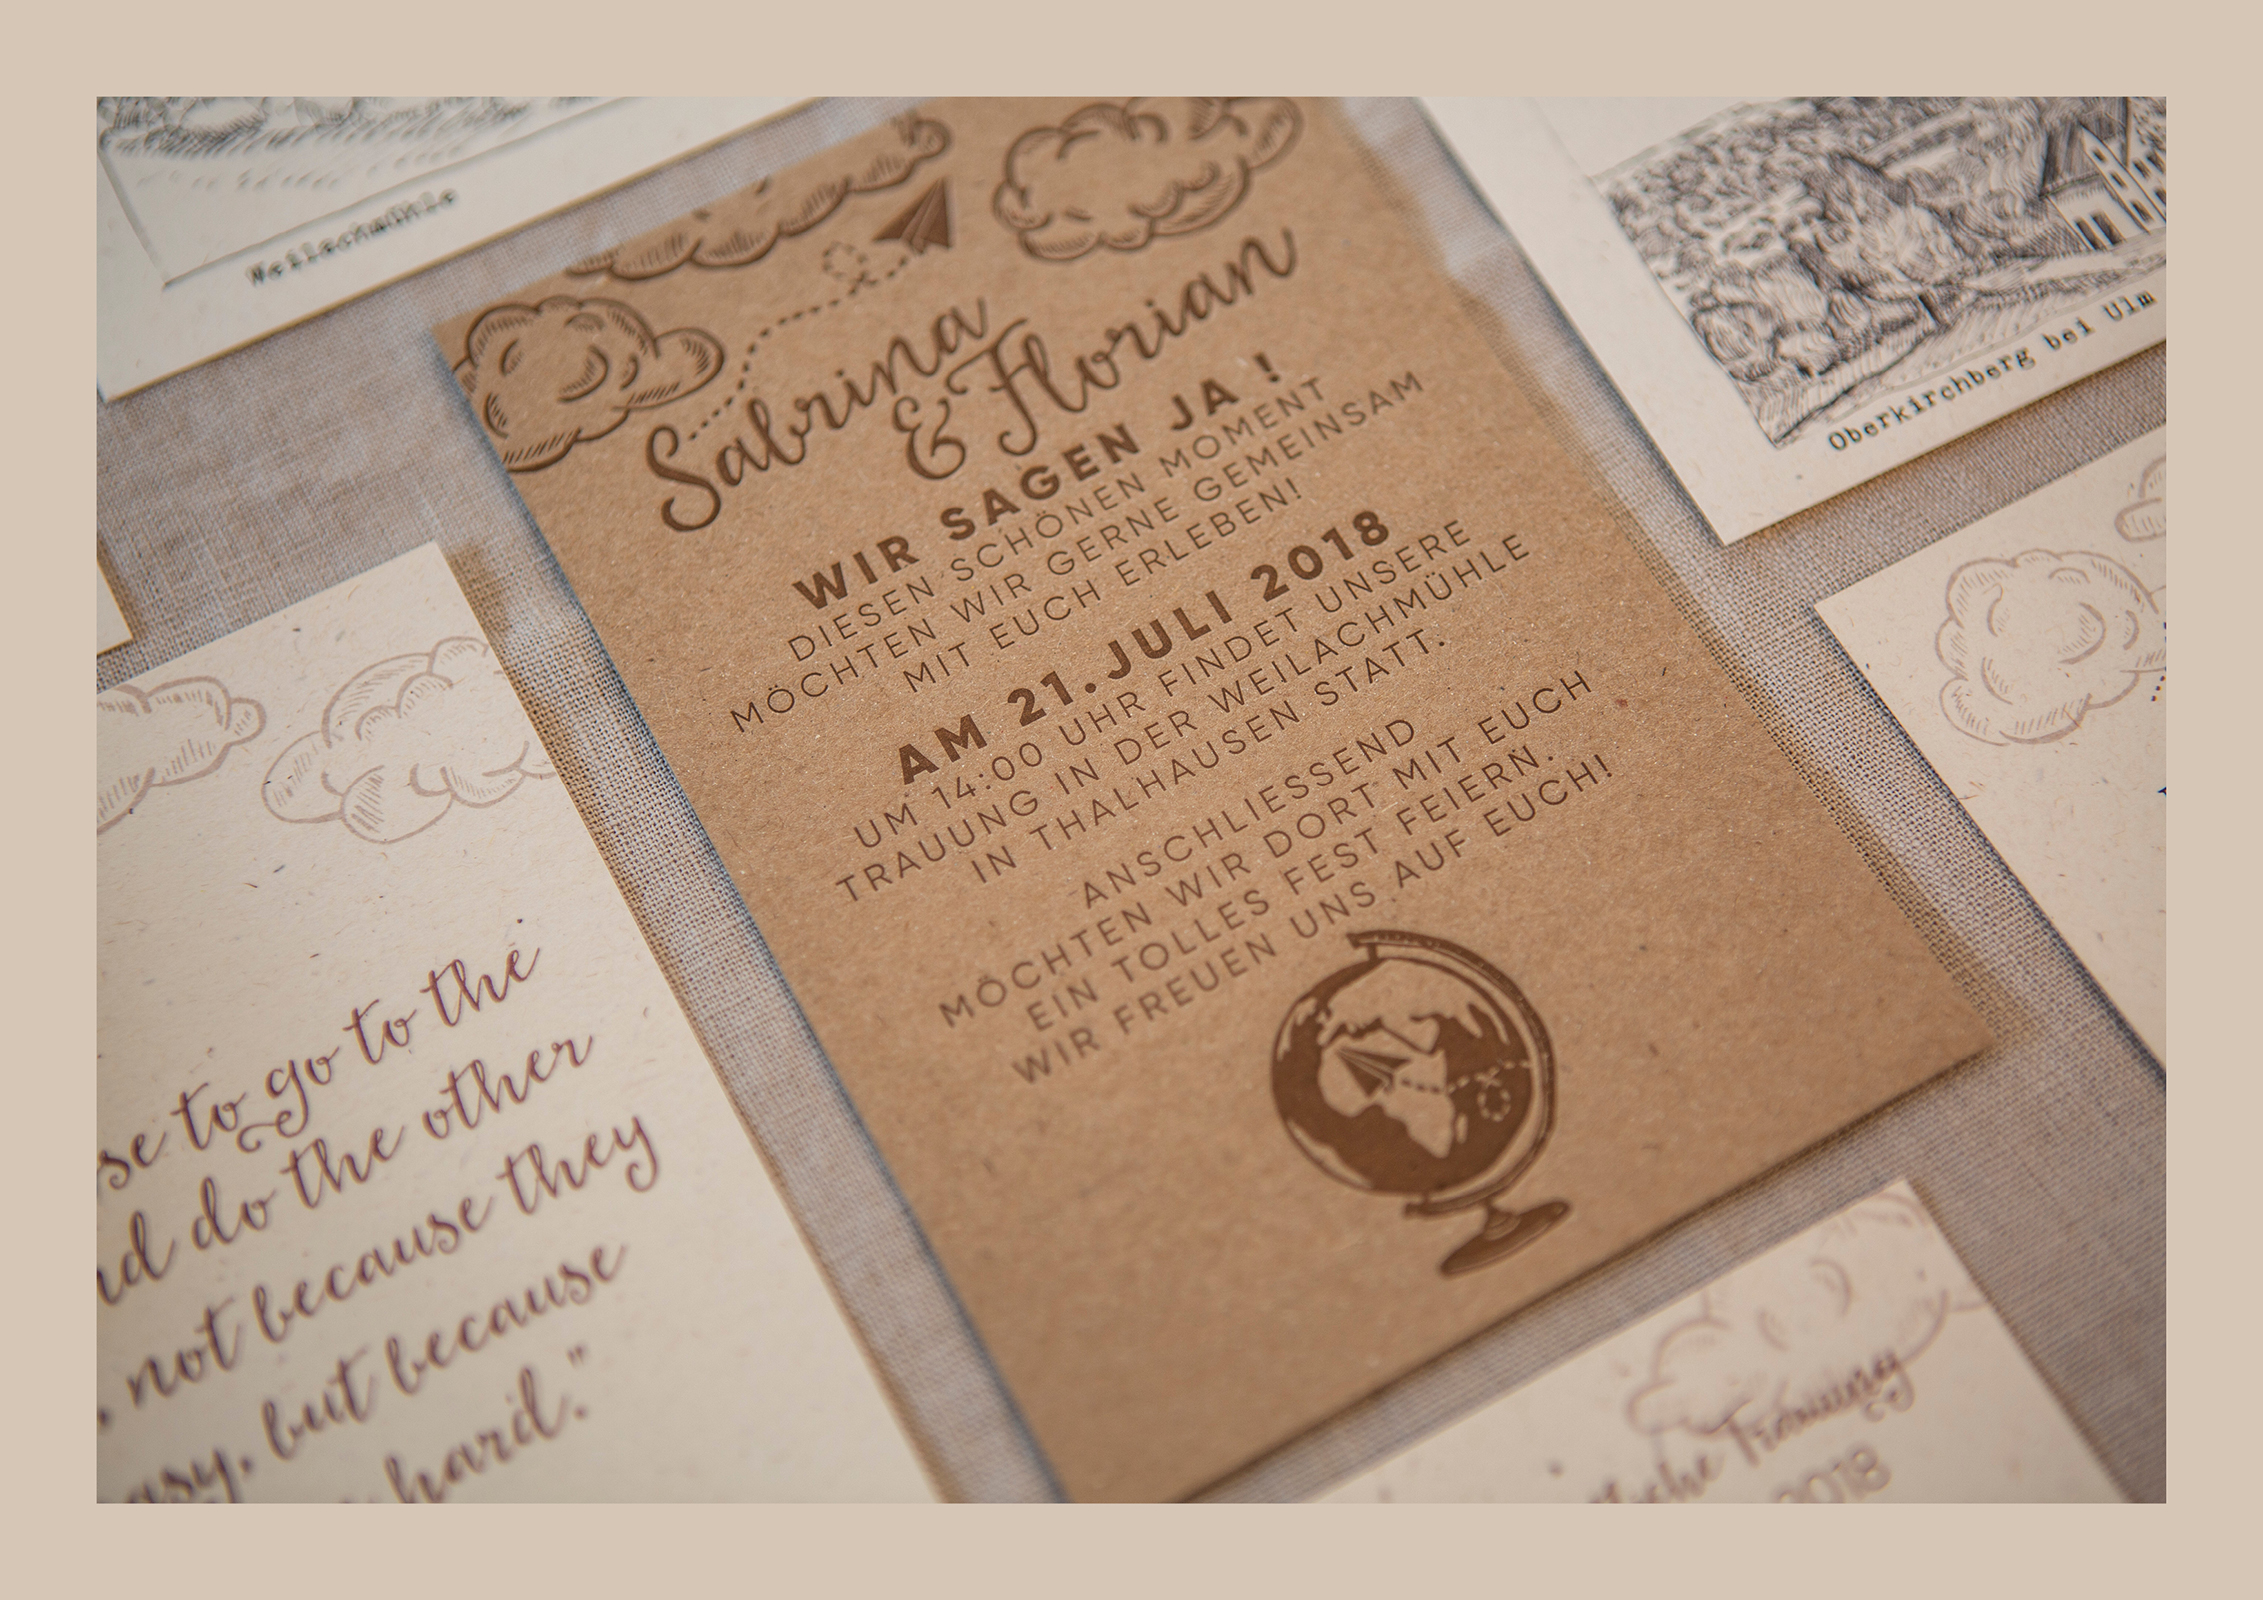 Weilachmühle
Sabrina
& Florian
WIR SAGEN JA !
DIESEN SCHÖNEN MOMENT
MÖCHTEN WIR GERNE GEMEINSAM
MIT EUCH ERLEBEN!
AM 21. JULI 2018
UM 14:00 UHR FINDET UNSERE
TRAUUNG IN DER WEILACHMÜHLE
IN THALHAUSEN STATT.
ANSCHLIESSEND
MÖCHTEN WIR DORT MIT EUCH
EIN TOLLES FEST FEIERN.
WIR FREUEN UNS AUF EUCH!
Oberkirchberg bei Ulm
se to go to the
nd do the other
, not because they
asy, but because
hard."
Trauung
2018